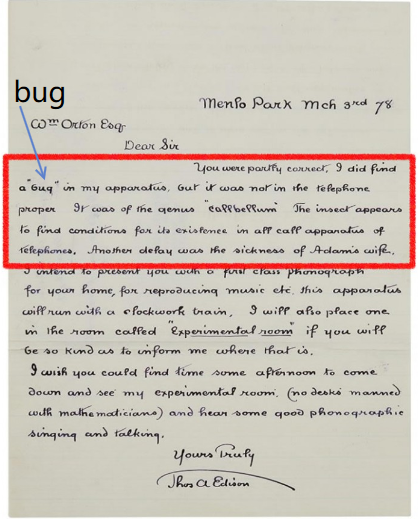 bug
Menlo Park Mch 3rd 78
Wm Orton Esq
Dear Sir
You were partly correct, I did find
a "bug" in my apparatus, but it was not in the telephone
proper It was of the genus "callbellum" The insect appears
to find conditions for its existence in all call apparatus of
telephones. Another delay was the sickness of Adams wife.
I intend to present you with a first class phonograph
for your home, for reproducing music etc. this apparatus
will run with a clockwork train, I will also place one
in the room called "Experimental room" if you will
be so kind as to inform me where that is.
I wish you could find time some afternoon to come
down and see my experimental room, (no desks manned
with mathematicians) and hear some good phonographic
singing and talking.
Yours Truly
Thos A Edison